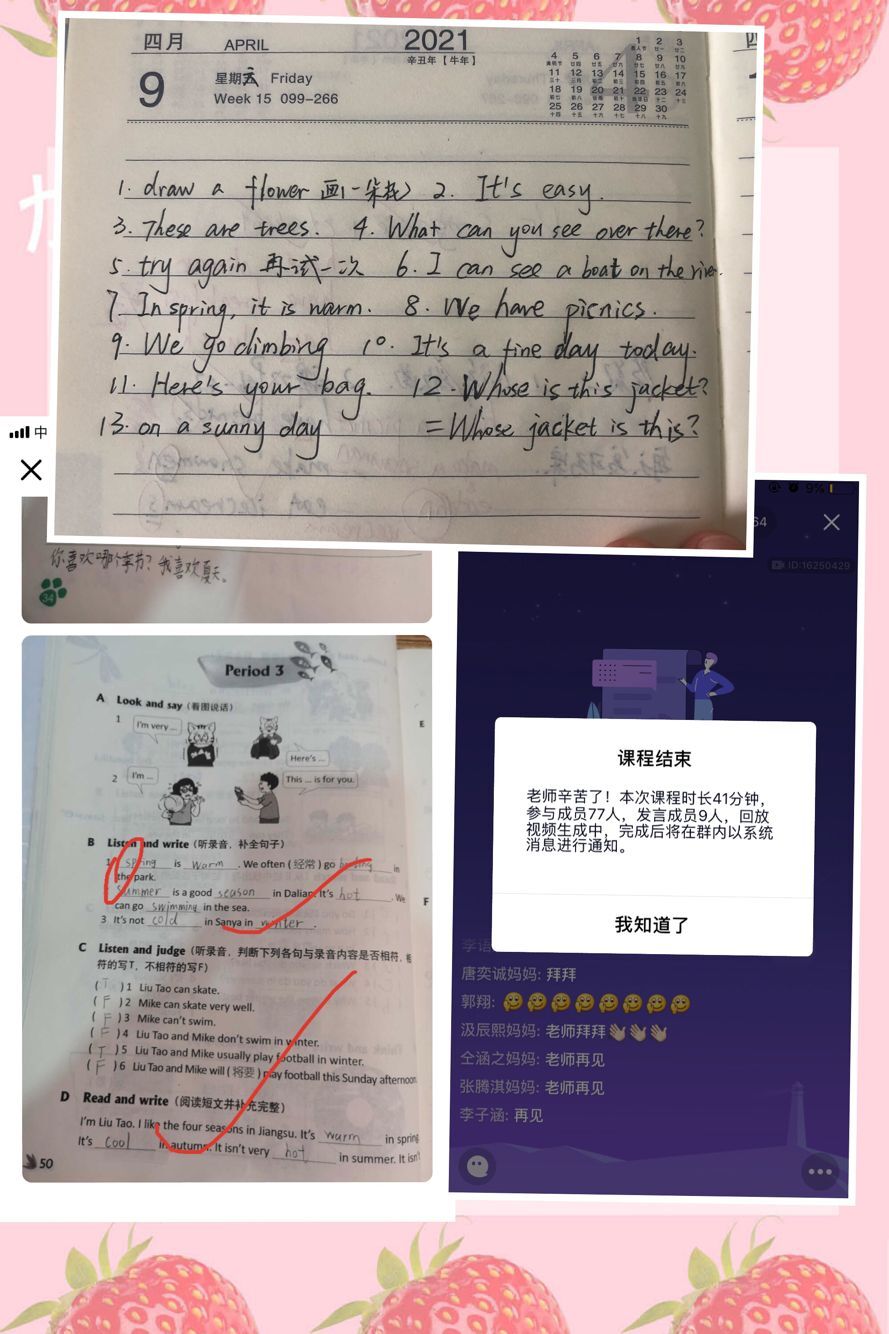 四月 APRIL 2021
辛丑年【牛年】
9 星期五 Friday
Week 15 099-266
1 2 3
4 5 6 7 8 9 10
11 12 13 14 15 16 17
18 19 20 21 22 23 24
25 26 27 28 29 30
1. draw a flower 画一朵花 2. It's easy.
3. These are trees. 4. What can you see over there?
5. try again 再试一次 6. I can see a boat on the river.
7. In spring, it is warm. 8. We have picnics.
9. We go climbing 10. It's a fine day today.
11. Here's your bag. 12. Whose is this jacket?
13. on a sunny day = Whose jacket is this?
中
你喜欢哪个季节？我喜欢夏天。
34
Period 3
A Look and say（看图说话）
1 I'm very ...
Here's ...
2 I'm ...
This ... is for you.
B Listen and write（听录音，补全句子）
1 spring is warm. We often (经常) go boating in
the park.
summer is a good season in Dalian. It's hot. We
can go swimming in the sea.
3 It's not cold in Sanya in winter.
C Listen and judge（听录音，判断下列各句与录音内容是否相符，相
符的写T，不相符的写F）
(T) 1 Liu Tao can skate.
(F) 2 Mike can skate very well.
(F) 3 Mike can't swim.
(F) 4 Liu Tao and Mike don't swim in winter.
(T) 5 Liu Tao and Mike usually play football in winter.
(F) 6 Liu Tao and Mike will (将要) play football this Sunday afternoon
D Read and write（阅读短文并补充完整）
I'm Liu Tao. I like the four seasons in Jiangsu. It's warm in spring
It's cool in autumn. It isn't very hot in summer. It isn't
50
E
F
9%
64
ID:16250429
课程结束
老师辛苦了！本次课程时长41分钟，
参与成员77人，发言成员9人，回放
视频生成中，完成后将在群内以系统
消息进行通知。
我知道了
唐奕诚妈妈: 拜拜
郭翔:
汲辰熙妈妈: 老师拜拜
仝涵之妈妈: 老师再见
张腾淇妈妈: 老师再见
李子涵: 再见